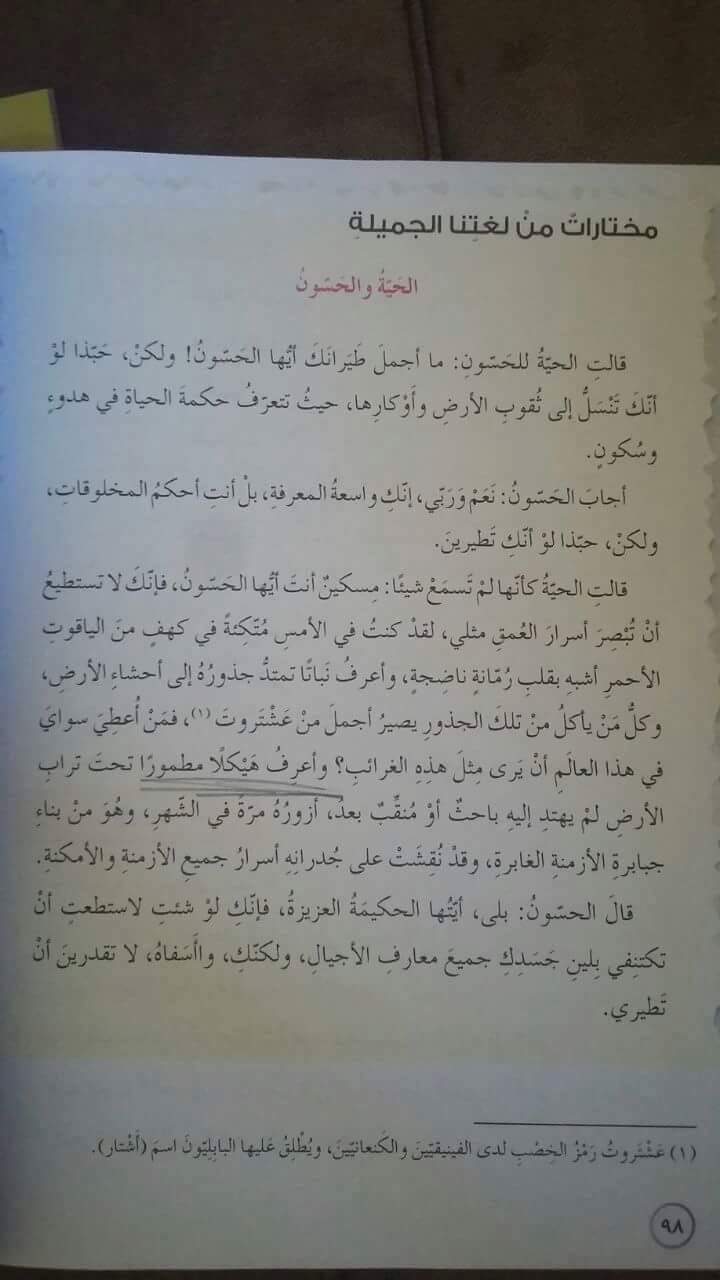 مختاراتٌ منْ لغتِنا الجميلةِ
الحَيّةُ والحَسّونُ
قالتِ الحيّةُ للحَسّونِ: ما أجملَ طَيَرانَكَ أيُّها الحَسّونُ! ولكنْ، حَبّذا لوْ
أنّكَ تَنْسَلُّ إلى ثُقوبِ الأرضِ وأَوْكارِها، حيثُ تتعرّفُ حكمةَ الحياةِ في هدوءٍ
وسُكونٍ.
أجابَ الحَسّونُ: نَعَمْ وَرَبّي، إنّكِ واسعةُ المعرفةِ، بلْ أنتِ أحكمُ المخلوقاتِ،
ولكنْ، حبّذا لوْ أنّكِ تَطيرينَ.
قالتِ الحيّةُ كأنّها لمْ تَسمَعْ شيئًا: مِسكينٌ أنتَ أيُّها الحَسّونُ، فإنّكَ لا تستطيعُ
أنْ تُبْصِرَ أسرارَ العُمقِ مثلي، لقدْ كنتُ في الأمسِ مُتّكِئةً في كهفٍ منَ الياقوتِ
الأحمرِ أشبهِ بقلبِ رُمّانةٍ ناضِجةٍ، وأعرفُ نَباتًا تمتدُّ جذورُهُ إلى أحشاءِ الأرضِ،
وكلُّ مَنْ يأكلُ منْ تلكَ الجذورِ يصيرُ أجملَ منْ عَشْتَروتَ (١)، فمَنْ أُعطِيَ سوايَ
في هذا العالَمِ أنْ يَرى مِثلَ هذِهِ الغرائبِ؟ وأعرِفُ هَيْكلًا مطمورًا تحتَ ترابِ
الأرضِ لمْ يهتدِ إليهِ باحثٌ أوْ مُنقِّبٌ بعدُ، أزورُهُ مرّةً في الشّهرِ، وهُوَ منْ بناءِ
جبابرةِ الأزمنةِ الغابرةِ، وقدْ نُقِشَتْ على جُدرانِهِ أسرارُ جميعِ الأزمنةِ والأمكنةِ.
قالَ الحسّونُ: بلى، أيّتُها الحكيمَةُ العزيزةُ، فإنّكِ لوْ شئتِ لاستطعتِ أنْ
تكتنِفي بِلينِ جَسَدِكِ جميعَ معارفِ الأجيالِ، ولكنّكِ، واأَسَفاهُ، لا تقدرينَ أنْ
تَطيري.
(١) عَشْتَروتُ رَمْزُ الخِصْبِ لدى الفينيقيّينَ والكَنعانيّينَ، ويُطْلِقُ عَليها البابِليّونَ اسمَ (أَشْتار).
٩٨